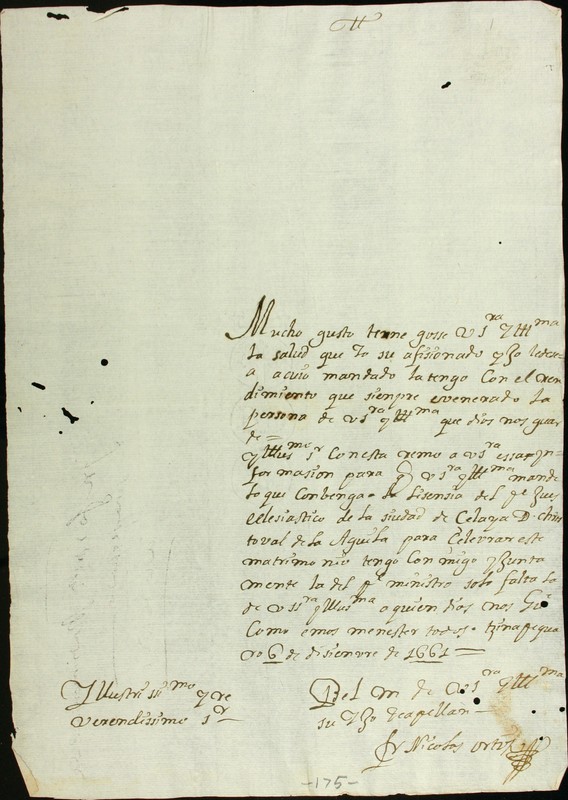 Mucho gusto tenne gosse V S^ra Ylll^ma
la salud que Yo su afisionado yjo le desea
a acuio mandado la tengo Con el ren
dimiento que sienpre e venerado la
persona de V S^ra Ylll^ma que dios nos guar
de =
Yllus^mo S^r Con esta remo a V S^ra essa yn=
formasion para q V S^ra Ylle^ma mande
lo que Conbenga = la lisensia del Jues
eclesiastico de la siudad de Celaya D. chris
toval de la Aguila para Celevrar este
matrimonio tengo Conmigo y Junta
mente la del p^e ministro solo falta la
de V SS^ra Yllus^ma a quien dios nos G^e
Como emos menester todos = tzinapequa
ro 6 de disienvre de 1661 =
Yllustrissi^mo y re
verendissimo S^r
Del m de V S^ra Ylll^ma
su yjo y capellan
fr Nicolas ortis
-175-